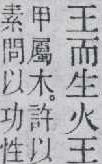 王而生火王
甲屬木。許以
素問以功性